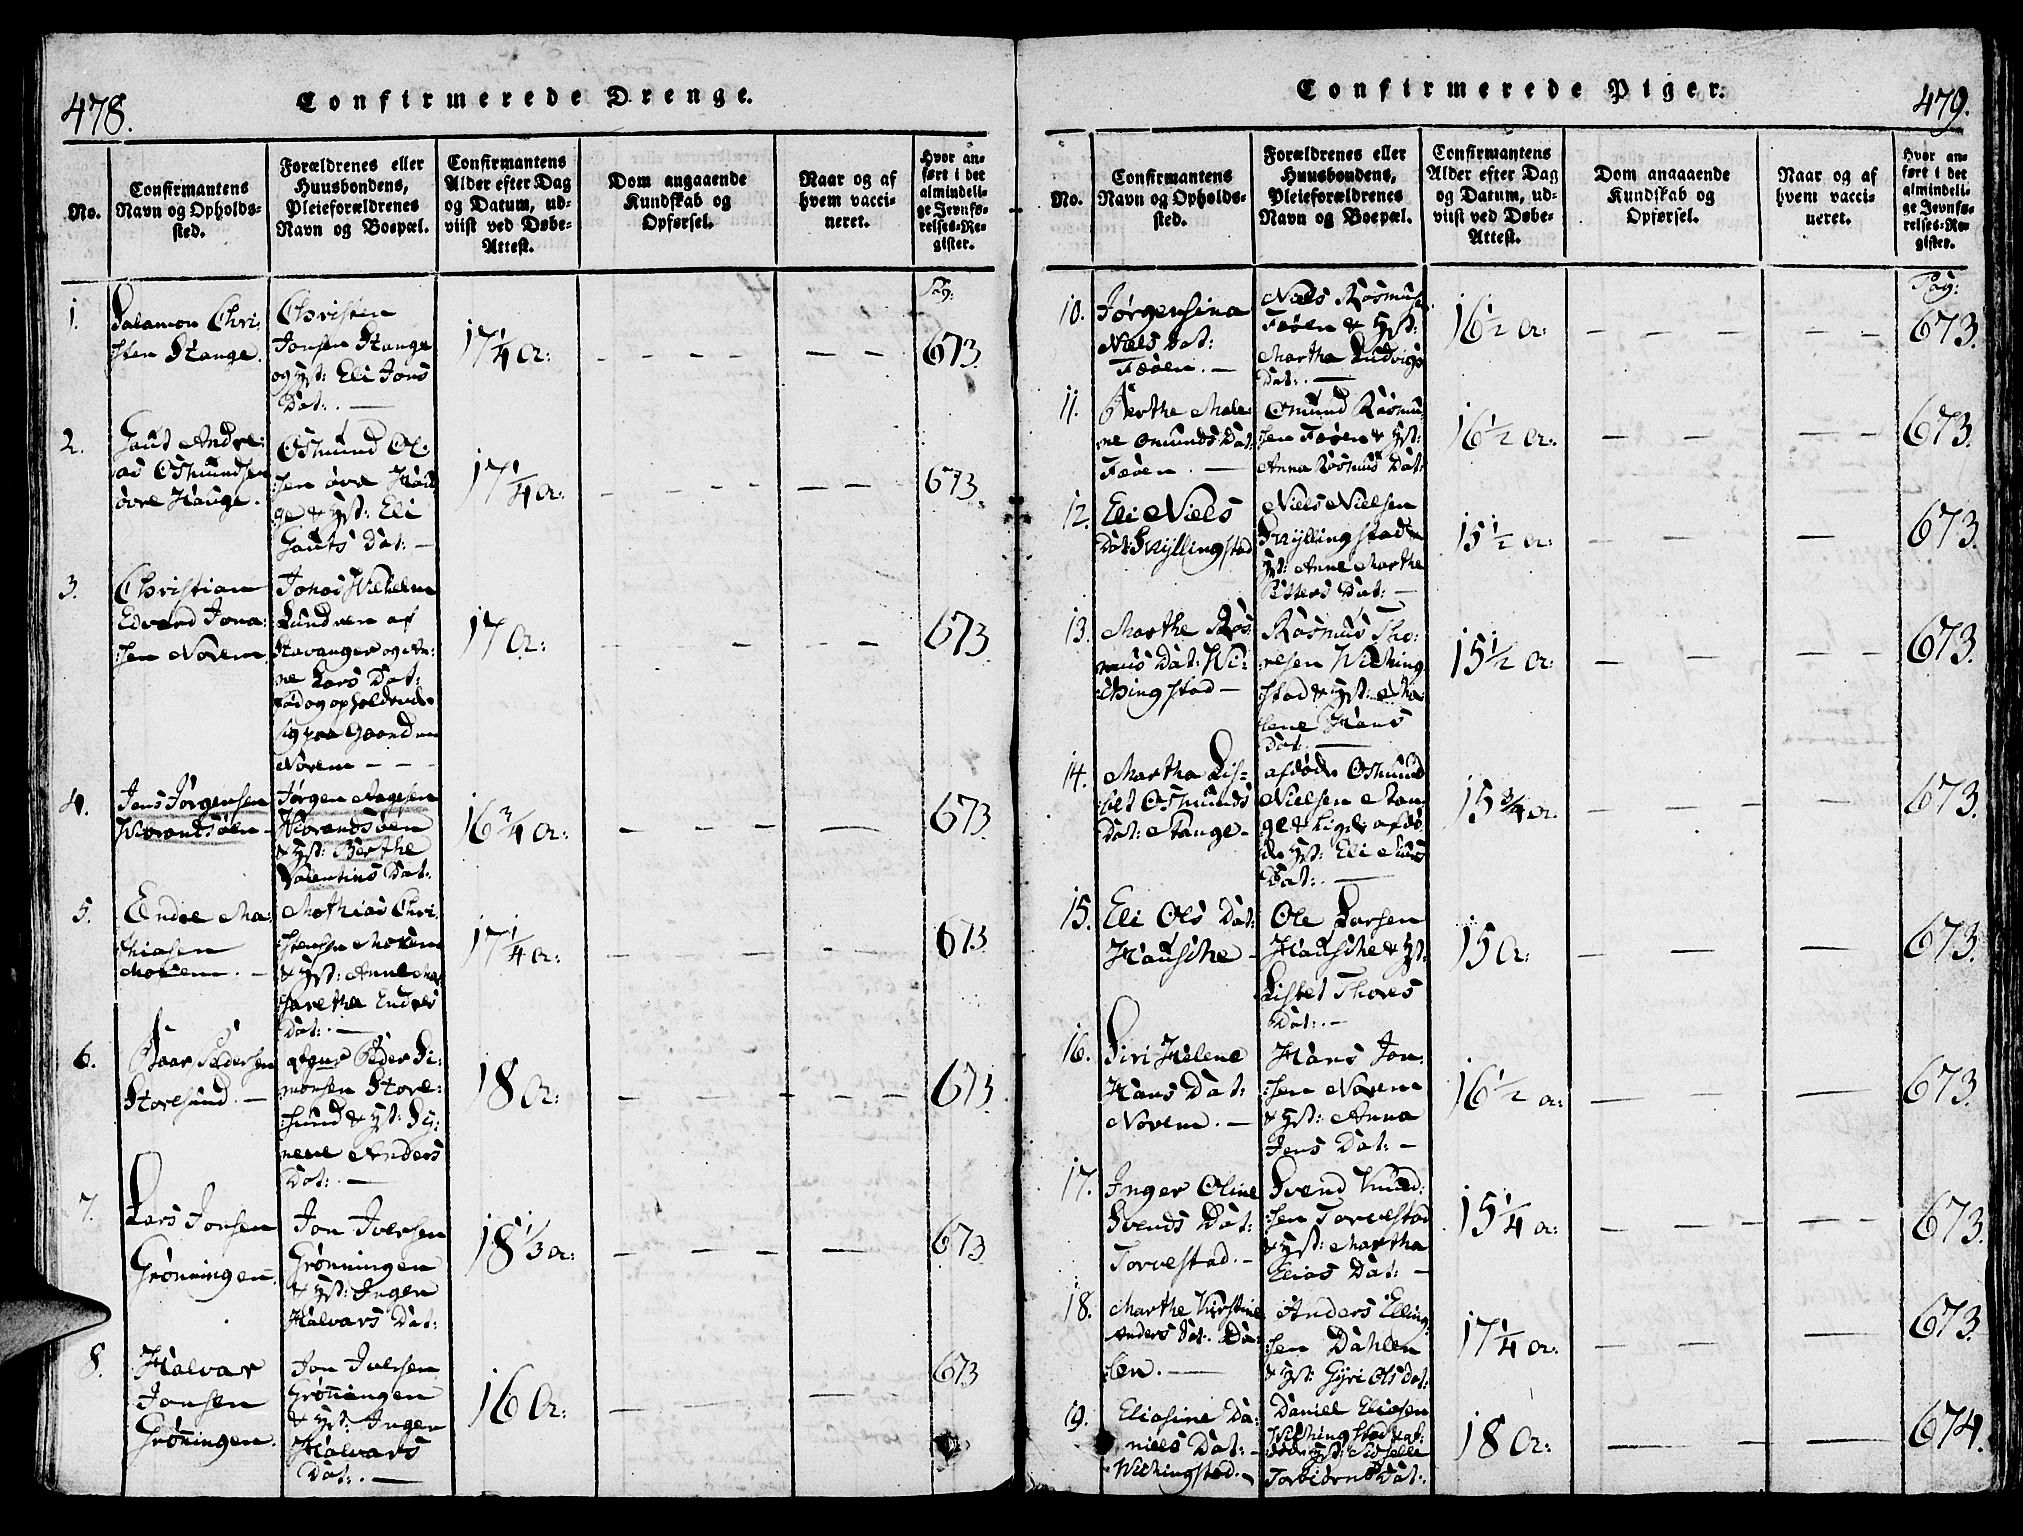 478.
Confirmerede Drenge.
No.
Confirmantens
Navn og Opholds-
sted.
Forældrenes eller
Huusbondens,
Pleieforældrenes
Navn og Boepæl.
Confirmantens
Alder efter Dag
og Datum, ud-
viist ved Døbe-
Attest.
Dom angaaende
Kundskab og
Opførsel.
Naar og af
hvem vacci-
neret.
Hvor an-
ført i det
almindeli-
ge Jevnfø-
relses-Re-
gister.
Pag:
1.
Salamon Chri:
sten Stange.
Christen
Jonsen Stange
og Hst: Eli Jens
Dat:. —
17¼ Ar: — — — — — — 673.
2.
Gaut Andre:
as Osmundsen
øvre Hauge.
Osmund Ol:
:sen øvre Hau
ge & Hst: Eli
Gauts Dat: —
17¼ Ar: — — — — — — 673.
3.
Christian
Edverd Jona:
:sen Norem
Jonas Wilhelm
Lund ven af
Stavanger og An:
ne Lars Dat:
Gaard
Norem — — —
17 Ar: — — — — — — 673
4.
Jens Jørgensen
Wibrandsøen —
Jørgen Aagesen
Wibrandsøen
& Hst: Berthe
Valentins Dat:
16¾ Ar: — — — — 673.
5.
Endre Ma:
thiasen
—
Mathias Chri:
:stensen
& Hst: Anne Mar
garethe Endres
Dat:. —
17¼ Ar: — — — — — 673
6.
Baar Pedersen
Storesund. —
Peder Si:
monsen Store:
:sund & Hst: Sy:
nene Anders
Dat:. —
18 Ar: — — — — — — 673
7.
Lars Jonsen
Grönningen.
Jon Iversen
Grönningen
& Hst: Inger
Halvars Dat:
18⅓ Ar: — — — — 673
8.
Halvar
Jonsen
Grönningen.
Jon Iversen
Grönningen
& Hst: Inger
Halvars
Dat:. —
16 Ar: — — — — 673
479.
Confirmerede Piger.
No.
Confirmantens
Navn og Opholds-
sted.
Forældrenes eller
Huusbondens,
Pleieforældrenes
Navn og Boepæl.
Confirmantens
Alder efter Dag
og Datum, ud-
viist ved Døbe-
Attest.
Dom angaaende
Kundskab og
Opførsel.
Naar og af
hvem vacci-
neret.
Hvor an-
ført i det
almindeli-
ge Jevnfø-
relses-Re-
gister.
Pag:
10.
Jørgensina
Niels Dat:
Føøen. —
Niels Rasmus
Føøen & Hst:
Martha Ludvigs
Dat:. —
16½ Ar: — — — — — 673.
11.
Berthe Male:
ne Omunds Dat:
Føøen. —
Omund Rasmu:
sen Føøen & Hst:
Anna Rasmus Dat:
16½ Ar: — — — — 673.
12.
Eli Niels
Dat: Sryllingstad
Niels Nielsen
Sryllingstad &
Hst: Anne Marthe
Dat: —
15½ Ar: — — — — 673.
13.
Marthe Ras:
mus Dat: Wi:
chingstad —
Rasmus Tho:
resen Wiching
stad & Hst: Ma
lene Hans
Dat:. —
15½ Ar: — — — — 673.
14.
Martha Lis:
:bet Osmunds
Dat: Stange.
afdøde Osmund
Nielsen Stan:
ge & Lige afdø
de Hst: Eli
Dat:. —
15¾ Ar: — — — — — 673.
15.
Eli Ols Dat:
Hauske —
Ole Larsen
Hauske & Hst:
Lisbet Thores
Dat:. —
15 Ar: — — — — 673.
16.
Siri Helene
Hans Dat:
Norem. —
Hans Jon:
:sen Norem
& Hst: Anna
Jens Dat: —
16½ Ar: — — — 673.
17.
Inger Oline
Svends Dat:
Torvestad. —
Svend Knud:
:sen Torvestad
& Hst: Martha
Elias Dat: —
15¼ Ar: — — — — — 673.
18.
Marthe Kirstine
Anders Dat: Da:
:len. —
Anders Elling:
:sen Dahlen
& Hst: Gyri Ols Dat:
17¼ Ar: — — — 673.
19.
Eliasine Da:
niels Dat: —
Wichingstad. —
Daniel Eliasen
Wichingstad & af:
døde Hst: Sidselle
Torbiørns Dat:.
18 Ar: — — — 674.